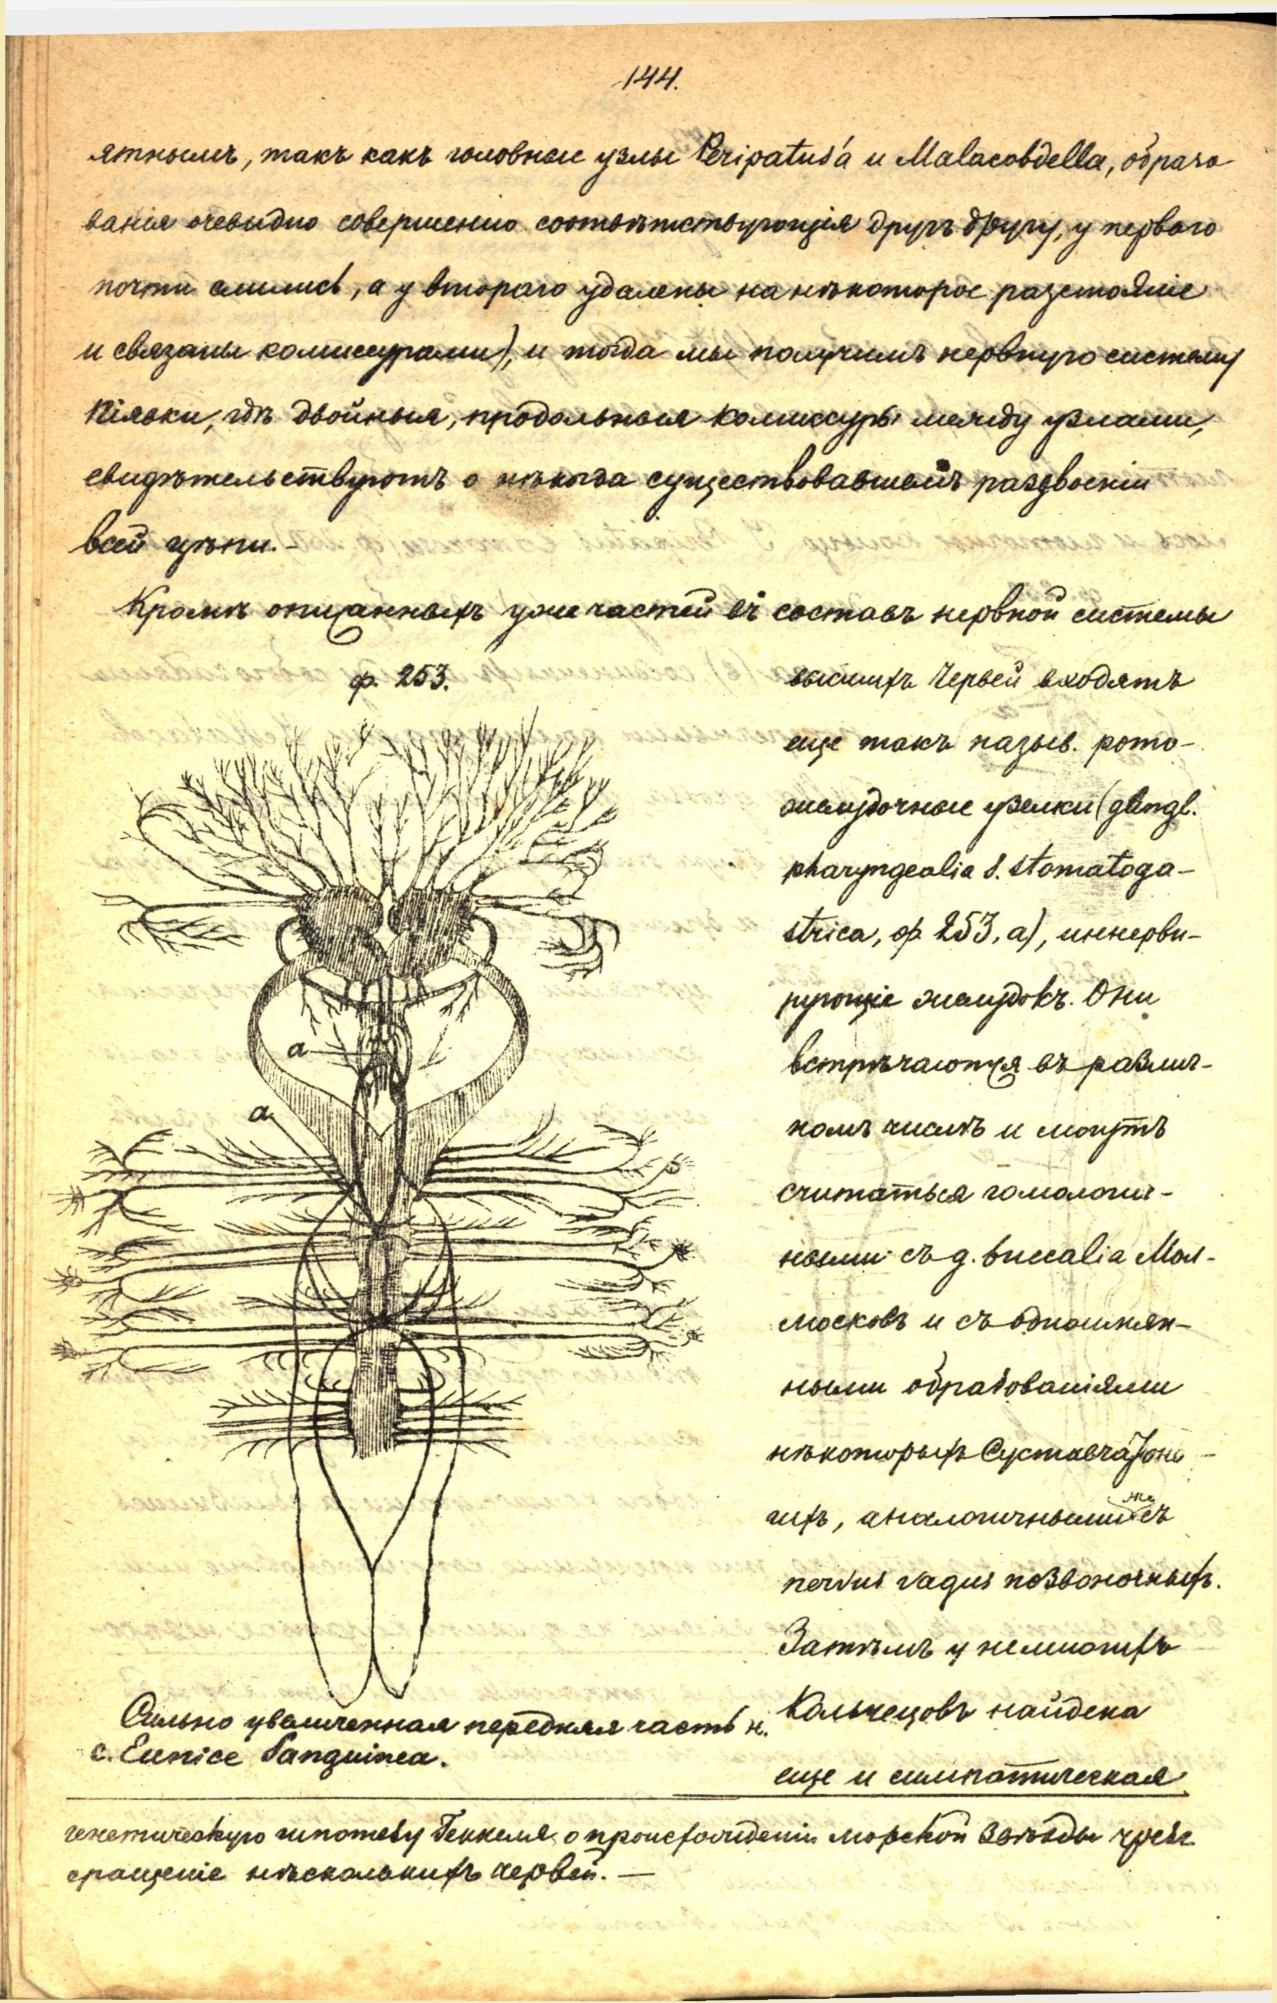 144.
ятнымъ, такъ какъ головные узлы Peripatus'a и Malacobdella, образо-
ванія очевидно совершенно соотвѣтствующія другъ другу, у перваго
почти слились, а у втораго удалены на нѣкоторое разстояніе
и связаны комиссурами), и тогда мы получимъ нервную систему
Піявки, гдѣ двойныя, продольныя комиссуры между узлами,
свидѣтельствуютъ о нѣкогда существовавшемъ раздвоеніи
всей цѣпи.-
Кромѣ описанныхъ уже частей въ составъ нервной системы
ф. 253.
высшихъ Червей входятъ
еще такъ назыв. рото-
желудочные узелки (gangl.
pharyngealia s. stomatoga-
strica, ф. 253, a), иннерви-
рующіе желудокъ. Они
встрѣчаются въ различ-
номъ числѣ и могутъ
считаться гомологич-
ными съ g. buccalia Мол-
люсковъ и съ одноимен-
ными образованіями
нѣкоторыхъ Суставчатоно-
гихъ, аналогичными же съ
nervus vagus позвоночныхъ.
Затѣмъ у немногихъ
Кольчецовъ найдена
еще и симпатическая
a
a
Сильно увеличенная передняя часть н.
с. Eunice Sanguinea.
генетическую гипотезу Геккеля о происхожденіи морской звѣзды чрезъ
сращеніе нѣсколькихъ червей. —